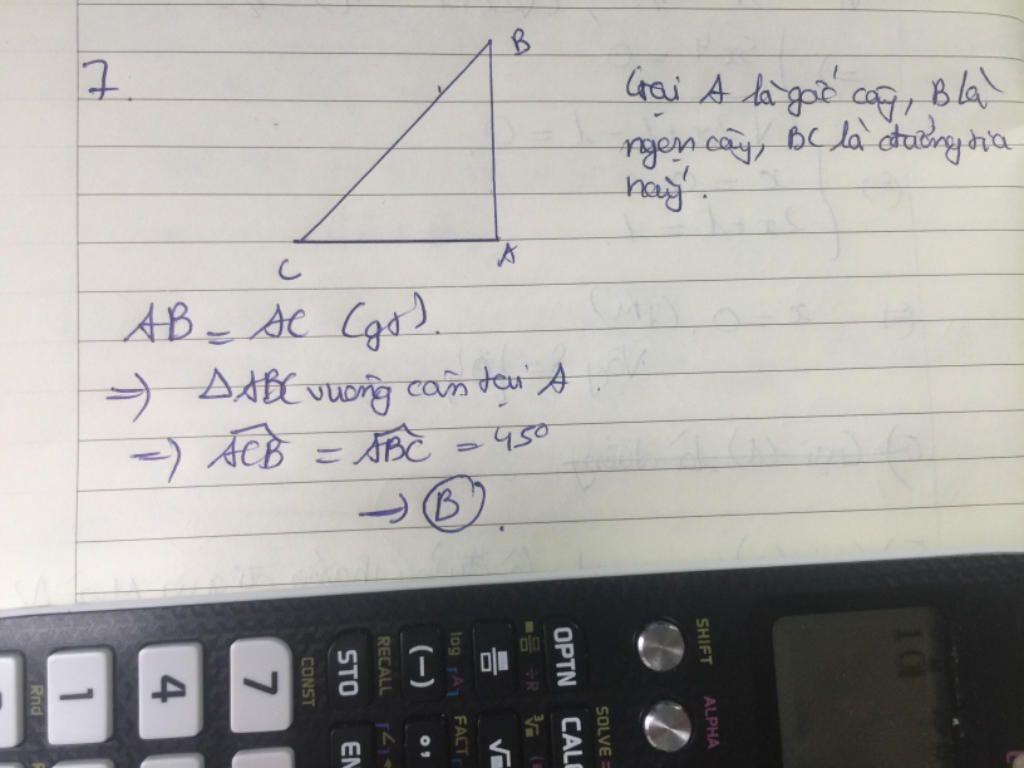 7.
B
Gọi A là gốc cây, B là
ngọn cây, BC là đường tia
nắng.
C
A
AB = AC (gt).
=> ΔABC vuông cân tại A.
=> ACB = ABC = 45°
→ B.
OPTN
SHIFT
STO
RECALL
(−)
log
CONST
7
4
1
Rnd
ALPHA
SOLVE =
CALC
FACT
EN
√